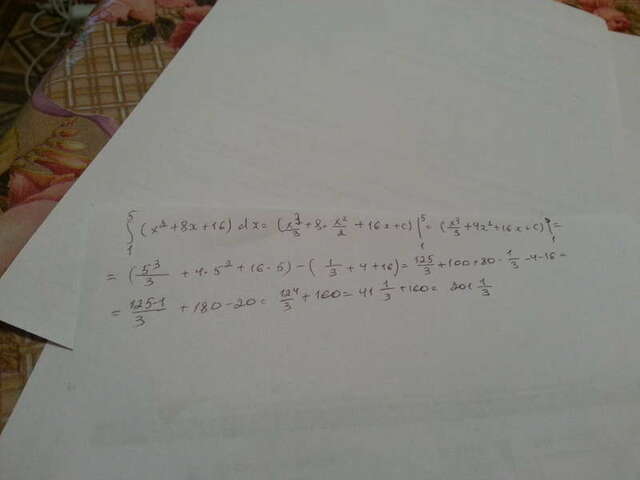 ∫₁⁵ (x²+8x+16) dx = (x³/3 + 8·x²/2 + 16x+c) |₁⁵ = (x³/3 + 4x²+16x+c) |₁⁵ =
= (5³/3 + 4·5² + 16·5) − (1/3 + 4 + 16) = 125/3 + 100 + 80 − 1/3 − 4 − 16 =
= 125-1/3 + 180 − 20 = 124/3 + 160 = 41 1/3 + 160 = 201 1/3